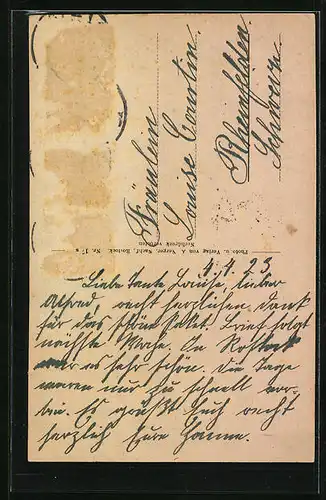 Fräulein
Louise Courtin
Rheinfelden
Schweiz
Photo- u. Verlag von A. Verger Nachf. Rostock. Nr. 17
Nachdruck verboten
4.4.23
Liebe Tante Louise, lieber
Alfred recht herzlichen Dank
für das schöne Paket. Brief folgt
nächste Woche. In Rostock
war es sehr schön. Die Tage
waren nur zu schnell vor-
bei. Es grüßt Euch recht
herzlich Eure Hanna.